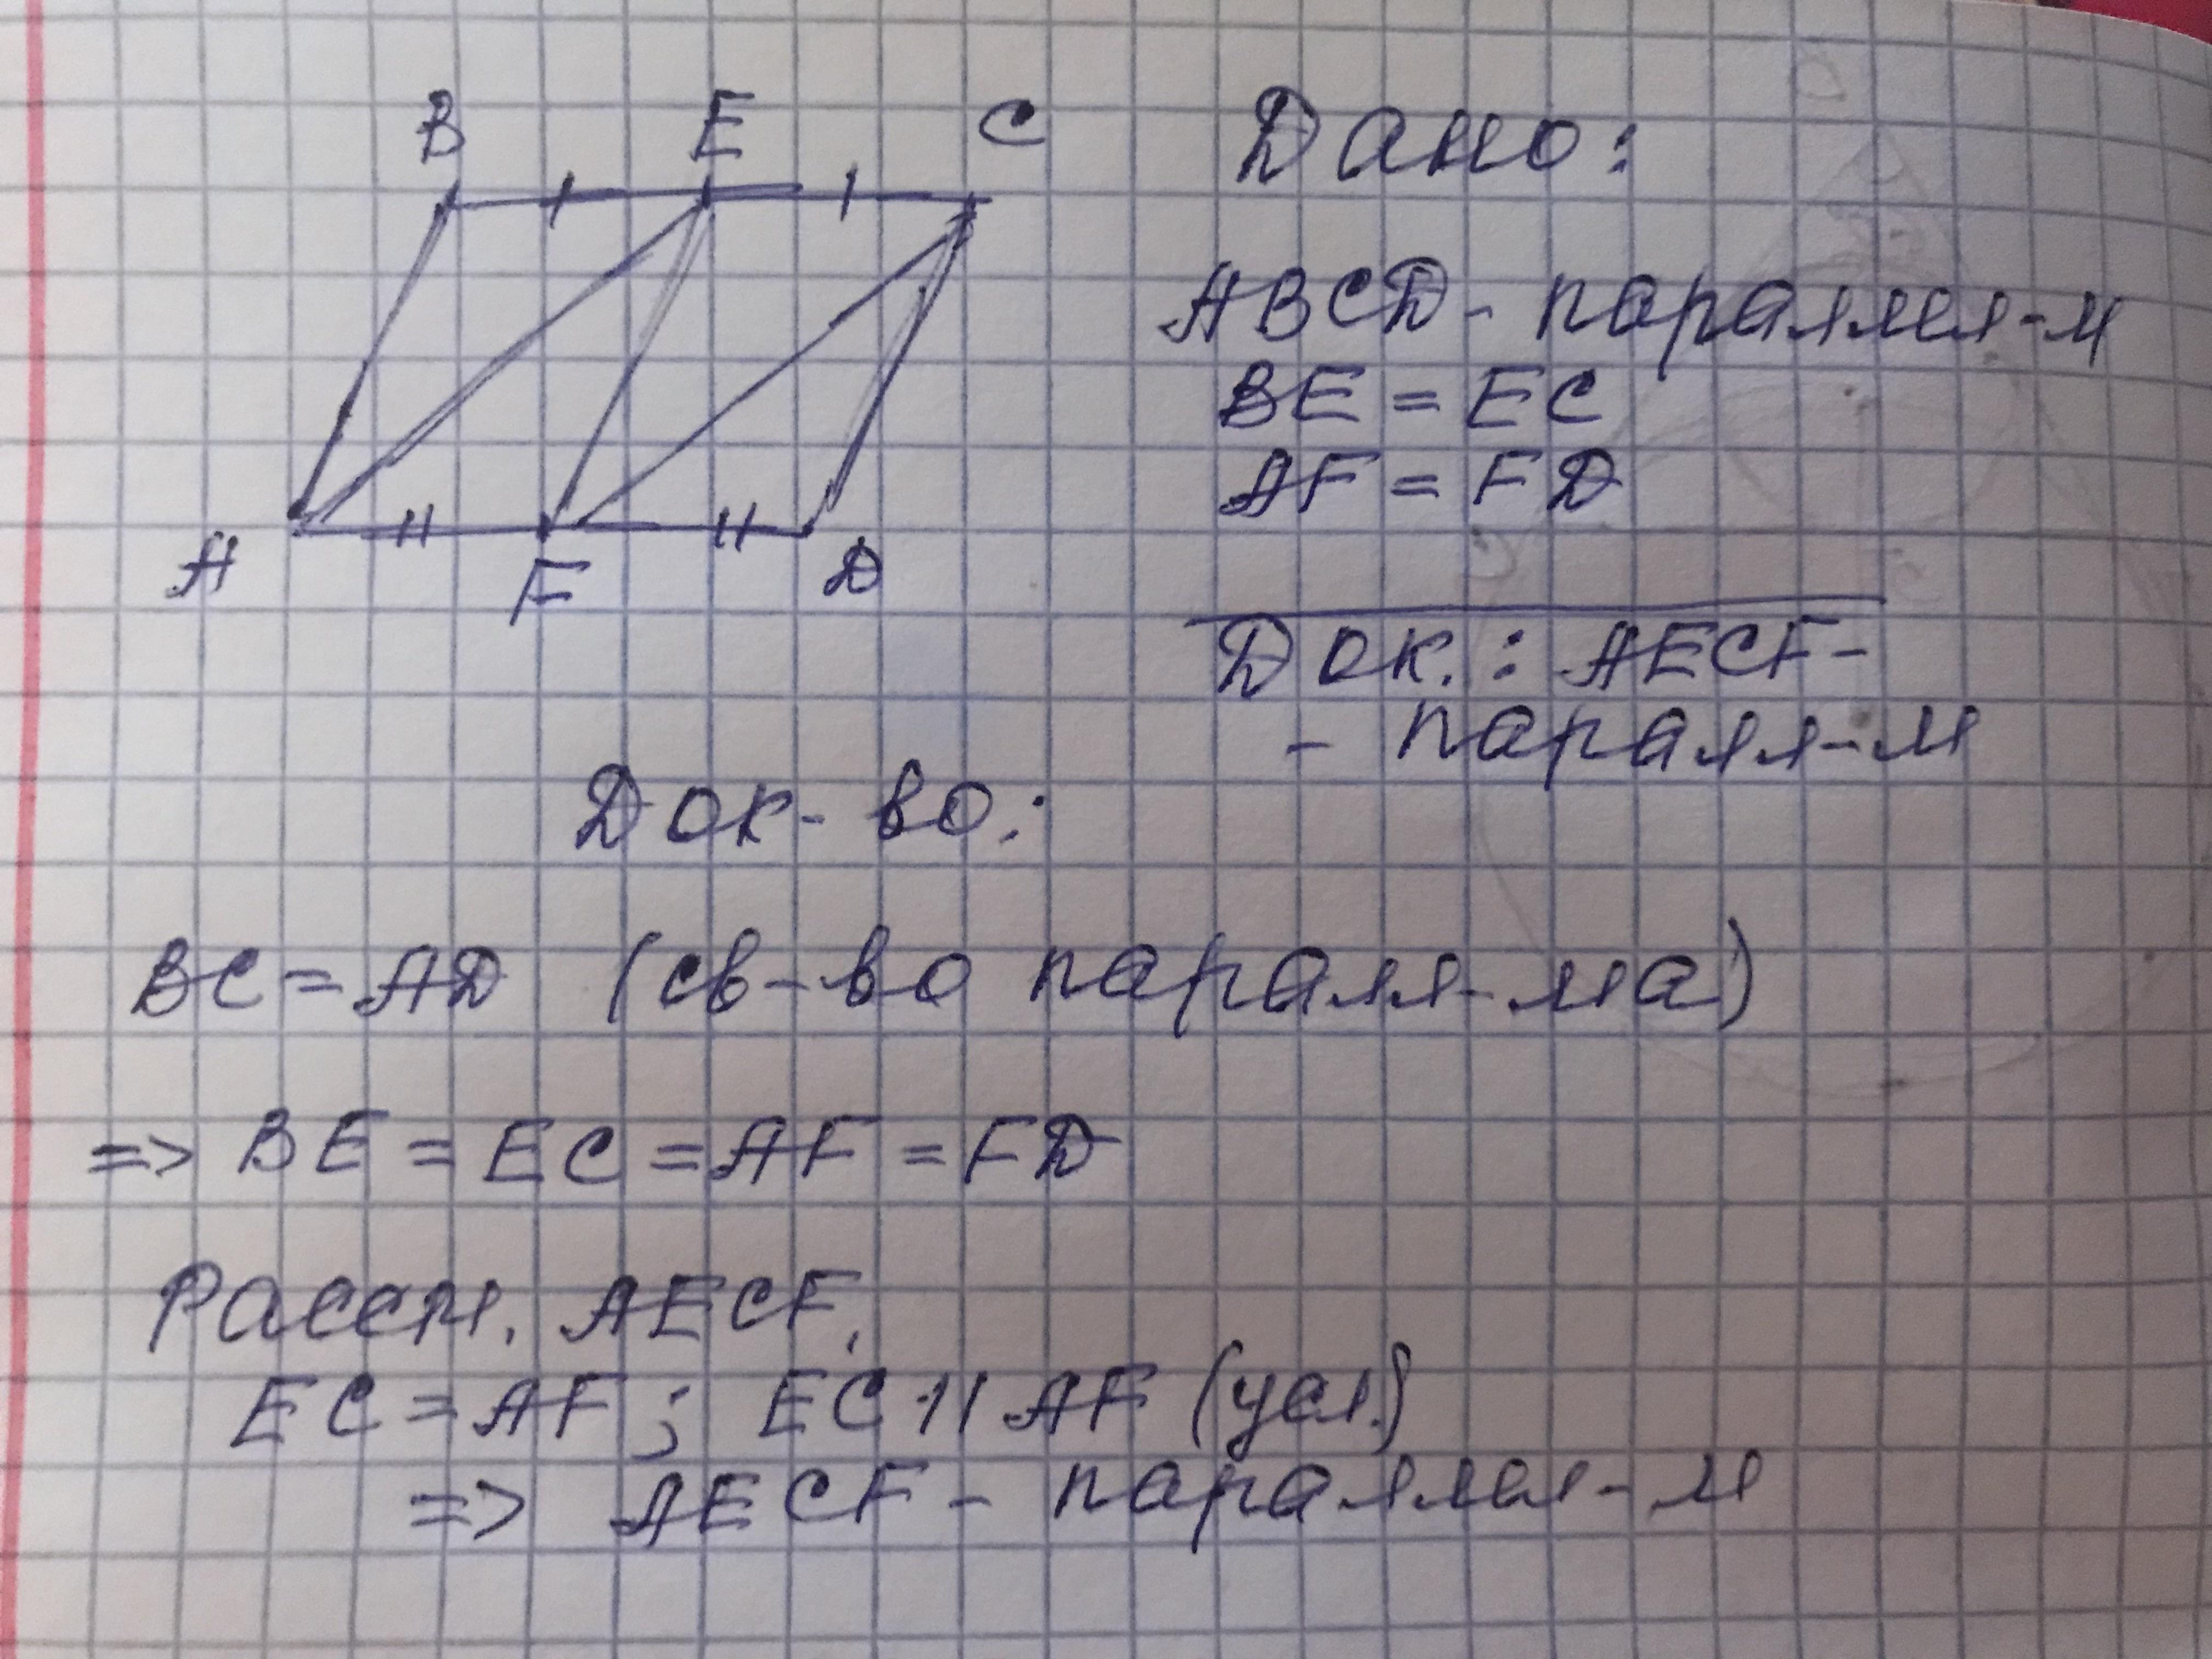 B E C
A F D
Дано:
ABCD - параллел-м
BE = EC
AF = FD
Док.: AECF -
- паралл-м
Док-во:
BC = AD (св-во паралл-ма)
=> BE = EC = AF = FD
Рассм. AECF.
EC = AF ; EC || AF (усл.)
=> AECF - параллел-м